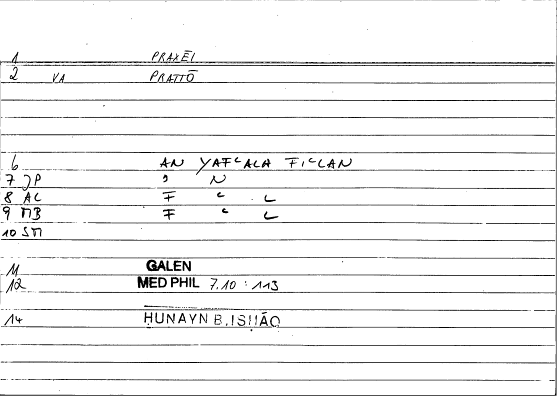 1 PRAXĒI
2 VA PRATTŌ
6 AN YAFʿALA FIʿLAN
7 JP ʾ N
8 AL F ʿ L
9 MB F ʿ L
10 SM
11 GALEN
12 MED PHIL 7.10 : 113
14 ḤUNAYN B. ISḤĀQ